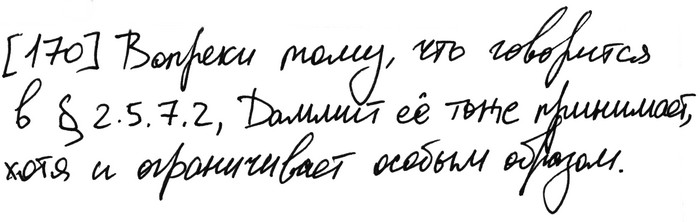 [170] Вопреки тому, что говорится
в § 2.5.7.2, Даммит её тоже принимает,
хотя и ограничивает особым образом.